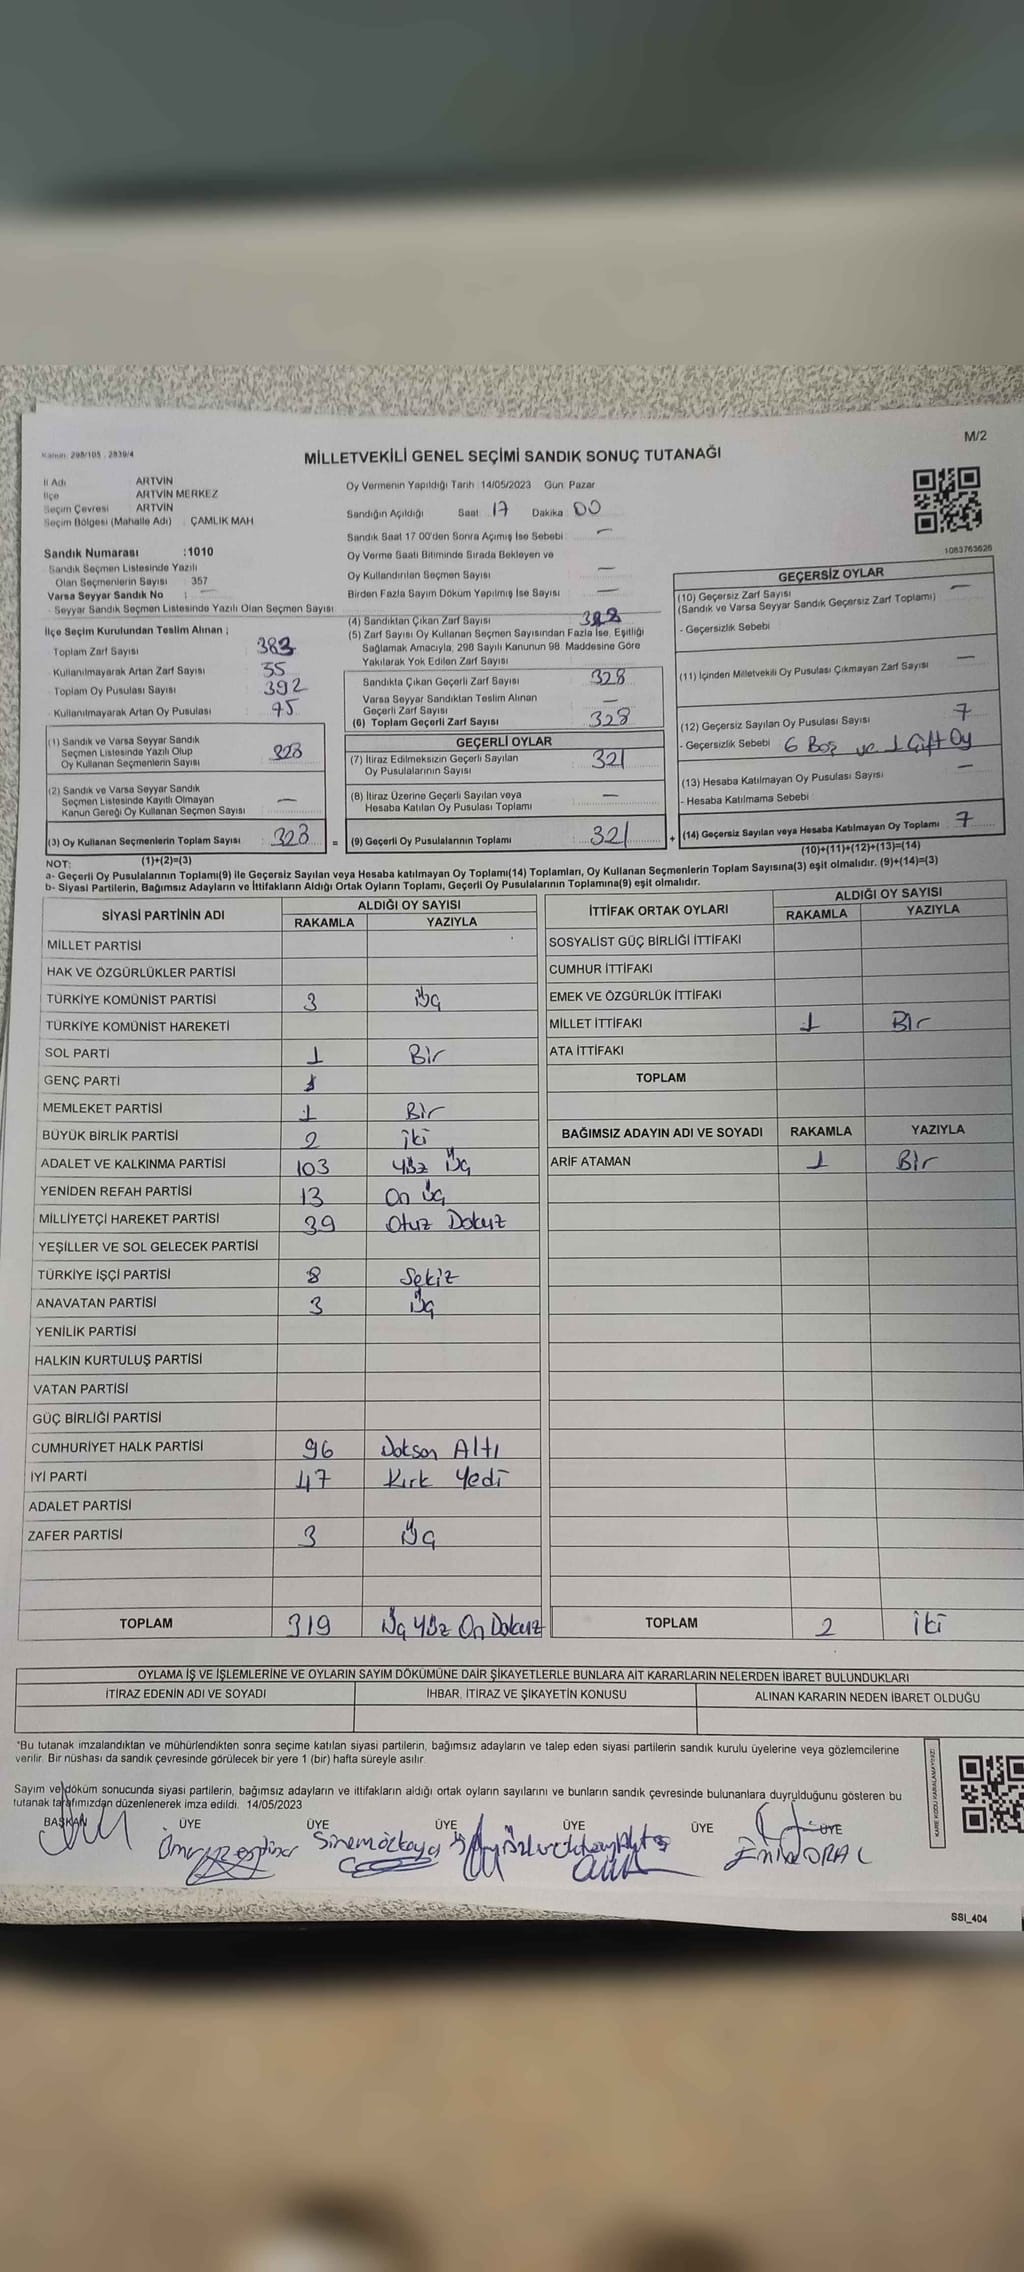 M/2
Kanun: 298/105 , 2839/4
MİLLETVEKİLİ GENEL SEÇİMİ SANDIK SONUÇ TUTANAĞI
İl Adı ARTVİN
İlçe ARTVİN MERKEZ
Seçim Çevresi ARTVİN
Seçim Bölgesi (Mahalle Adı) : ÇAMLIK MAH
Sandık Numarası :1010
Sandık Seçmen Listesinde Yazılı
Olan Seçmenlerin Sayısı : 357
Varsa Seyyar Sandık No : —
- Seyyar Sandık Seçmen Listesinde Yazılı Olan Seçmen Sayısı
İlçe Seçim Kurulundan Teslim Alınan ;
- Toplam Zarf Sayısı 383
- Kullanılmayarak Artan Zarf Sayısı 55
- Toplam Oy Pusulası Sayısı 392
- Kullanılmayarak Artan Oy Pusulası
(1) Sandık ve Varsa Seyyar Sandık
Seçmen Listesinde Yazılı Olup
Oy Kullanan Seçmenlerin Sayısı 328
(2) Sandık ve Varsa Seyyar Sandık
Seçmen Listesinde Kayıtlı Olmayan
Kanun Gereği Oy Kullanan Seçmen Sayısı —
(3) Oy Kullanan Seçmenlerin Toplam Sayısı 328 =
NOT: (1)+(2)=(3)
Oy Vermenin Yapıldığı Tarih 14/05/2023 Gün: Pazar
Sandığın Açıldığı Saat 17 Dakika 00
Sandık Saat 17 00'den Sonra Açımış İse Sebebi : —
Oy Verme Saati Bitiminde Sırada Bekleyen ve
Oy Kullandırılan Seçmen Sayısı —
Birden Fazla Sayım Döküm Yapılmış İse Sayısı —
(4) Sandıktan Çıkan Zarf Sayısı 328
(5) Zarf Sayısı Oy Kullanan Seçmen Sayısından Fazla İse, Eşitliği
Sağlamak Amacıyla, 298 Sayılı Kanunun 98. Maddesine Göre
Yakılarak Yok Edilen Zarf Sayısı
Sandıkta Çıkan Geçerli Zarf Sayısı 328
Varsa Seyyar Sandıktan Teslim Alınan
Geçerli Zarf Sayısı —
(6) Toplam Geçerli Zarf Sayısı 328
GEÇERLİ OYLAR
(7) İtiraz Edilmeksizin Geçerli Sayılan
Oy Pusulalarının Sayısı 321
(8) İtiraz Üzerine Geçerli Sayılan veya
Hesaba Katılan Oy Pusulası Toplamı —
(9) Geçerli Oy Pusulalarının Toplamı 321 +
1083763626
GEÇERSİZ OYLAR
(10) Geçersiz Zarf Sayısı —
(Sandık ve Varsa Seyyar Sandık Geçersiz Zarf Toplamı)
- Geçersizlik Sebebi
(11) İçinden Milletvekili Oy Pusulası Çıkmayan Zarf Sayısı —
(12) Geçersiz Sayılan Oy Pusulası Sayısı 7
- Geçersizlik Sebebi 6 Boş ve 1 Çift Oy
(13) Hesaba Katılmayan Oy Pusulası Sayısı —
- Hesaba Katılmama Sebebi
(14) Geçersiz Sayılan veya Hesaba Katılmayan Oy Toplamı 7
(10)+(11)+(12)+(13)=(14)
a- Geçerli Oy Pusulalarının Toplamı(9) ile Geçersiz Sayılan veya Hesaba katılmayan Oy Toplamı(14) Toplamları, Oy Kullanan Seçmenlerin Toplam Sayısına(3) eşit olmalıdır. (9)+(14)=(3)
b- Siyasi Partilerin, Bağımsız Adayların ve İttifakların Aldığı Ortak Oyların Toplamı, Geçerli Oy Pusulalarının Toplamına(9) eşit olmalıdır.
SİYASİ PARTİNİN ADI ALDIĞI OY SAYISI
RAKAMLA YAZIYLA
MİLLET PARTİSİ
HAK VE ÖZGÜRLÜKLER PARTİSİ
TÜRKİYE KOMÜNİST PARTİSİ 3 Üç
TÜRKİYE KOMÜNİST HAREKETİ
SOL PARTİ 1 Bir
GENÇ PARTİ
MEMLEKET PARTİSİ 1 Bir
BÜYÜK BİRLİK PARTİSİ 2 iki
ADALET VE KALKINMA PARTİSİ 103 Yüz Üç
YENİDEN REFAH PARTİSİ 13 On Üç
MİLLİYETÇİ HAREKET PARTİSİ 39 Otuz Dokuz
YEŞİLLER VE SOL GELECEK PARTİSİ
TÜRKİYE İŞÇİ PARTİSİ 8 Sekiz
ANAVATAN PARTİSİ 3 Üç
YENİLİK PARTİSİ
HALKIN KURTULUŞ PARTİSİ
VATAN PARTİSİ
GÜÇ BİRLİĞİ PARTİSİ
CUMHURİYET HALK PARTİSİ 96 Doksan Altı
İYİ PARTİ 47 Kırk Yedi
ADALET PARTİSİ
ZAFER PARTİSİ 3 Üç
TOPLAM 319 Üç Yüz On Dokuz
İTTİFAK ORTAK OYLARI ALDIĞI OY SAYISI
RAKAMLA YAZIYLA
SOSYALİST GÜÇ BİRLİĞİ İTTİFAKI
CUMHUR İTTİFAKI
EMEK VE ÖZGÜRLÜK İTTİFAKI
MİLLET İTTİFAKI 1 Bir
ATA İTTİFAKI
TOPLAM
BAĞIMSIZ ADAYIN ADI VE SOYADI RAKAMLA YAZIYLA
ARİF ATAMAN 1 Bir
TOPLAM 2 iki
OYLAMA İŞ VE İŞLEMLERİNE VE OYLARIN SAYIM DÖKÜMÜNE DAİR ŞİKAYETLERLE BUNLARA AİT KARARLARIN NELERDEN İBARET BULUNDUKLARI
İTİRAZ EDENİN ADI VE SOYADI İHBAR, İTİRAZ VE ŞİKAYETİN KONUSU ALINAN KARARIN NEDEN İBARET OLDUĞU
*Bu tutanak imzalandıktan ve mühürlendikten sonra seçime katılan siyasi partilerin, bağımsız adayların ve talep eden siyasi partilerin sandık kurulu üyelerine veya gözlemcilerine
verilir. Bir nüshası da sandık çevresinde görülecek bir yere 1 (bir) hafta süreyle asılır.
Sayım ve döküm sonucunda siyasi partilerin, bağımsız adayların ve ittifakların aldığı ortak oyların sayılarını ve bunların sandık çevresinde bulunanlara duyrulduğunu gösteren bu
tutanak tarafımızdan düzenlenerek imza edildi. 14/05/2023
KARE KODU KARALAMAYINIZ!
BAŞKAN ÜYE ÜYE ÜYE ÜYE ÜYE ÜYE
Sinem Özkaya
ORAL
SSI_404